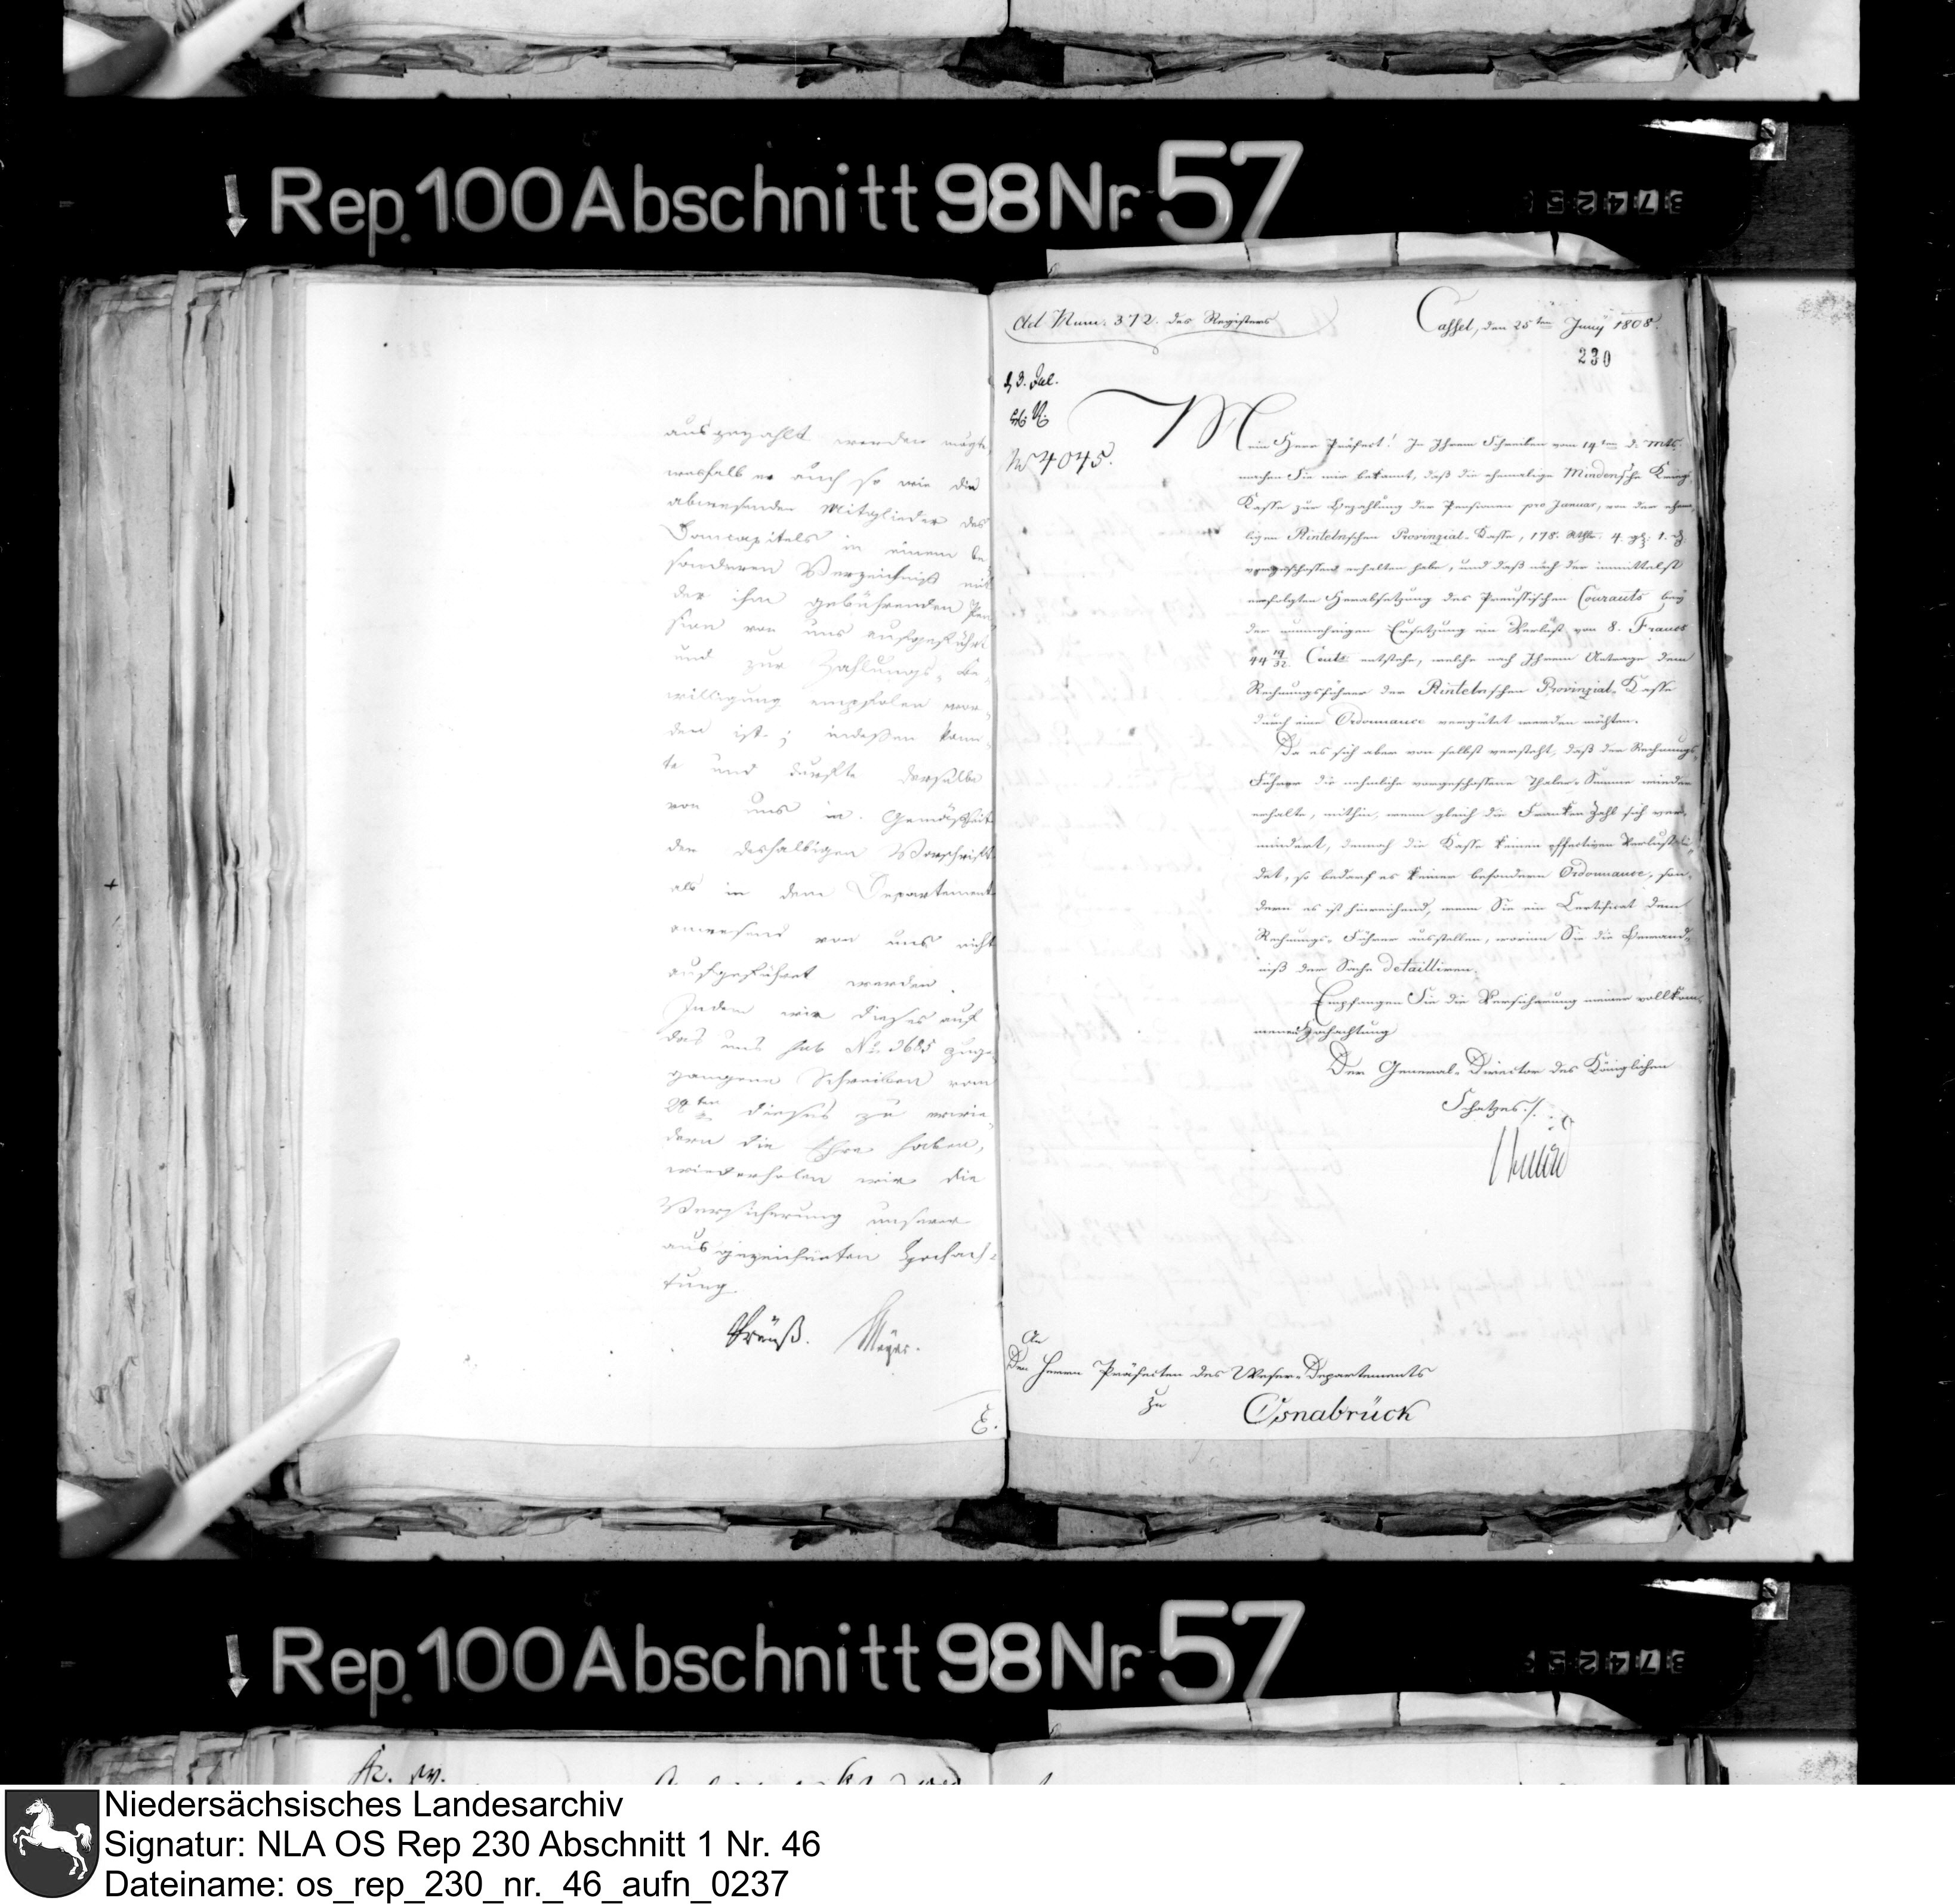 Rep. 100 Abschnitt 98 Nr. 57
ausgezahlt werden mögte
weshalb er auch so wie die
abwesenden Mitglieder des
Domcapitels in einem be„
sonderen Verzeichniß mit
der ihm gebührenden Pen„
sion von uns aufgeführt
und zur Zahlungs„ Be„
willigung empfolen wor„
den ist; indeßen konn„
te und durfte derselbe
von uns in Gemäßheit
der deshalbigen Vorschrift
als in dem Departement
anwesend von uns nicht
aufgeführt werden.
Indem wir dieses auf
das uns sub No. 3685 zuge„
gangene Schreiben vom
28ten dieses zu erwie„
dern die Ehre haben,
wiederholen wir die
Versicherung unserer
ausgezeichneten Hochach„
tung
Meyer.
Ad Num. 372. des Registers
Cassel, den 25ten Juny 1808.
230
No 4045.
Mein Herr Präfect! In Ihrem Schreiben vom 14ten d. Mts.
machen Sie mir bekannt, daß die ehemalige Mindensche Kriegs
Kasse zur Bezahlung der Pensionen pro Januar, von der ehema„
ligen Rintelnschen Provinzial-Kasse, 178. Rthlr. 4. gg. 1. d
vorgeschossen erhalten habe, und daß nach der inmittelst
erfolgten Herabsetzung des Preussischen Courants bey
der nunmehrigen Ersetzung ein Verlust von 8. Francs
44 19/32 Cents entstehe, welche nach Ihrem Antrage dem
Rechnungsführer der Rintelnschen Provinzial-Kasse
durch eine Ordonnance vergütet werden möchten.
Da es sich aber von selbst versteht, daß der Rechnungs„
Führer die nehmliche vorgeschossene Thaler-Summe wieder
erhalte, mithin, wenn gleich die Franken Zahl sich ver„
mindert, dennoch die Kasse keinen effectiven Verlust lei„
det, so bedarf es keiner besondern Ordonnance, son„
dern es ist hinreichend, wenn Sie ein Certificat dem
Rechnungs-Führer ausstellen, worinn Sie die Bewand„
niß der Sache detailliren.
Empfangen Sie die Versicherung meiner vollkom„
menen Hochachtung
Der General-Director des Königlichen
Schatzes./.
An
Den Herrn Präfecten des Weser-Departements
zu
Osnabrück
Rep. 100 Abschnitt 98 Nr. 57
Niedersächsisches Landesarchiv
Signatur: NLA OS Rep 230 Abschnitt 1 Nr. 46
Dateiname: os_rep_230_nr._46_aufn_0237